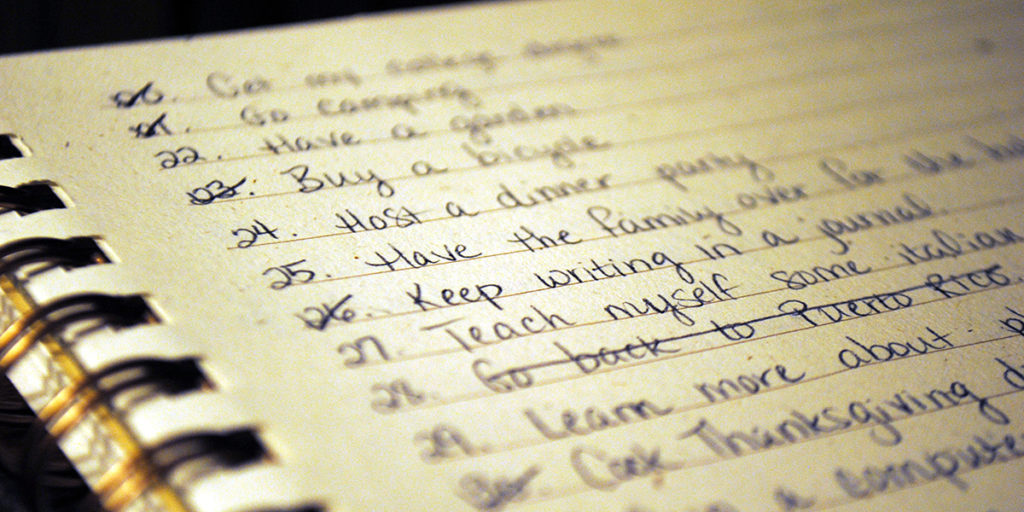 20. Get my college degree
21. Go camping
22. Have a garden
23. Buy a bicycle
24. Host a dinner party
25. Have the family over for the
26. Keep writing in a journal.
27. Teach myself some italian
28. Go back to Puerto Rico.
29. Learn more about
30. Cook Thanksgiving
a computer